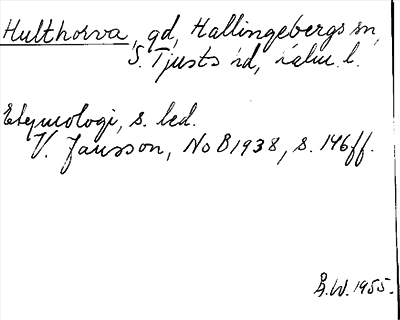 Hulthorva, gd, Hallingebergs sn,
S. Tjusts hd, Kalm. l.
Etymologi, s. led.
V. Jansson, NoB 1938, s. 146 ff.
B.W. 1955.